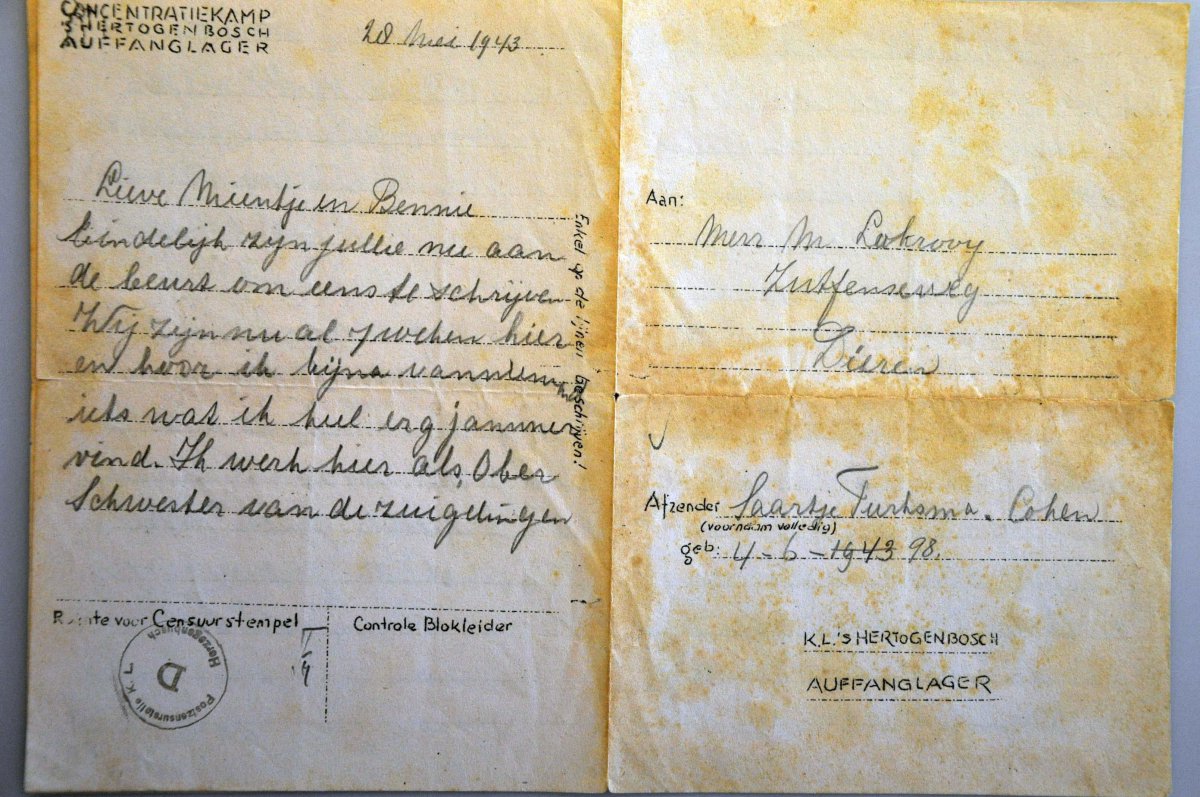 CONCENTRATIEKAMP
'S HERTOGENBOSCH
AUFFANGLAGER
28 Mei 1943
Lieve Mientje en Bennie
Eindelijk zijn jullie nu aan
de beurt om eens te schrijven
Wij zijn nu al 7 weken hier
en hoor ik bijna van niemand
iets wat ik heel erg jammer
vind. Ik werk hier als Ober
Schwester van de zuigelingen
Enkel op de lijnen beschrijven!
Ruimte voor Censuurstempel
Controle Blokleider
Postzensurstelle K. L.
Herzogenbusch
D
Aan:
M
Zutfenseweg
Dieren
Afzender Saartje Turksma. Cohen
(voornaam volledig)
geb: 4-6-1943 98.
K.L. 'S HERTOGENBOSCH
AUFFANGLAGER